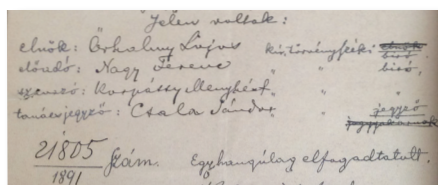 Jelen voltak:
elnök: Őrhalmy Lajos kir. törvényszéki elnök
bíró
előadó: Nagy Ferenc " bíró,
szavazó: Karpátty Menyhért, " "
tanácsjegyző: Csala Sándor " jegyző
21805 Szám. Egyhangúlag elfogadtatott.
1891